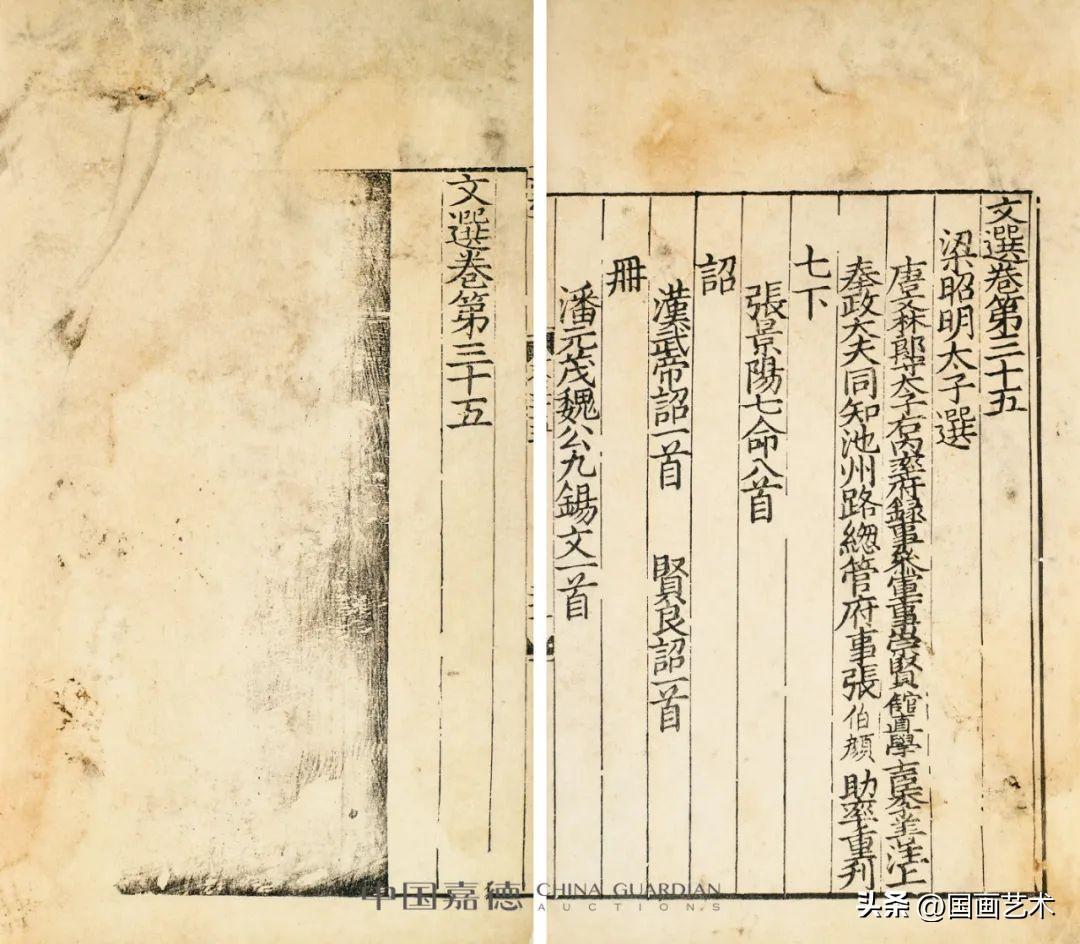 文選卷第三十五
梁昭明太子選
唐文林郎守太子右内率府録事叅軍事崇賢館直學士李善注上
奉政大夫同知池州路緫管府事張伯顔助率重刊
七下
張景陽七命八首
詔
漢武帝詔一首 賢良詔一首
冊
潘元茂魏公九錫文一首
文選卷第三十五
中国嘉德 CHINA GUARDIAN
AUCTIONS
头条 @国画艺术